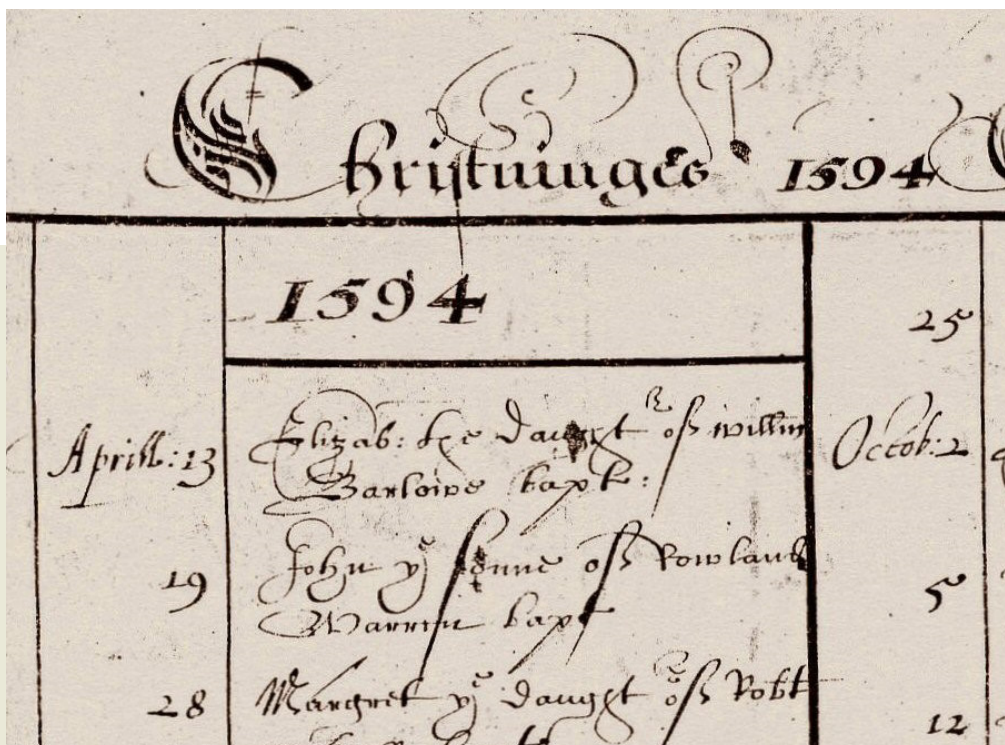 Christninges 1594
1594
Aprill: 13 Elizab: the daught of willm
Barlowe bapt:
19 John yͤ sonne of Rowland
Warren bapt
28 Margret yͤ daught of Robt
25
Octob: 2
5
12